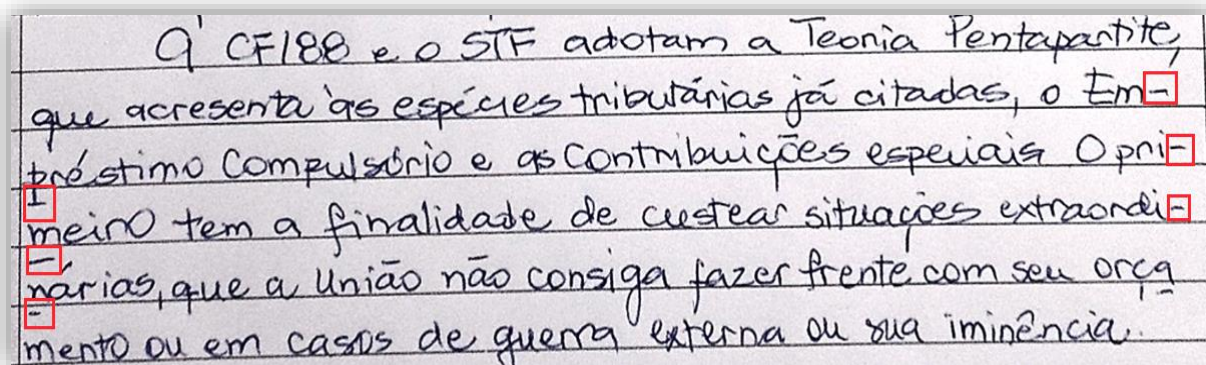 A CF/88 e o STF adotam a Teoria Pentapartite,
que acresenta as espécies tributárias já citadas, o Em-
préstimo Compulsório e as contribuições especiais O pri-
meiro tem a finalidade de custear situações extraordi-
nárias, que a União não consiga fazer frente com seu orça
mento ou em casos de guerra externa ou sua iminência.